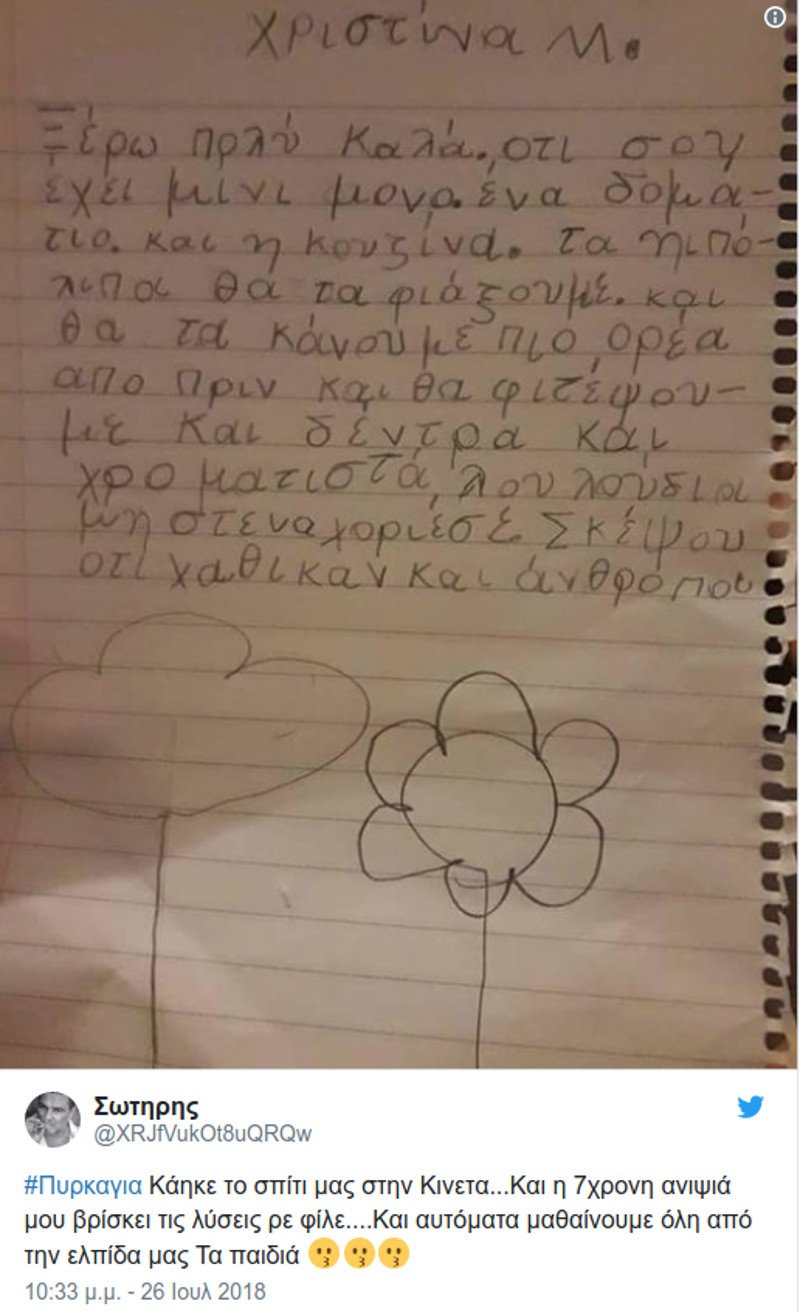 Χριστίνα Μ.
Ξέρω πολύ καλά. οτι σου
έχει μίνι μονο ένα δομα-
τιο. και η κουζίνα. τα ηιπό-
λιπα θα τα φιάξουμε. και
θα τα κάνουμε πιο ορέα
απο πριν και θα φιτέψου-
με και δέντρα και
χροματιστά λουλούδια
μη στεναχοριέσε Σκέψου
οτι χαθικαν και άνθρόπου
Σωτηρης
@XRJfVukOt8uQRQw
#Πυρκαγια Κάηκε το σπίτι μας στην Κινετα...Και η 7χρονη ανιψιά
μου βρίσκει τις λύσεις ρε φίλε....Και αυτόματα μαθαίνουμε όλη από
την ελπίδα μας Τα παιδιά 😗😗😗
10:33 μ.μ. - 26 Ιουλ 2018